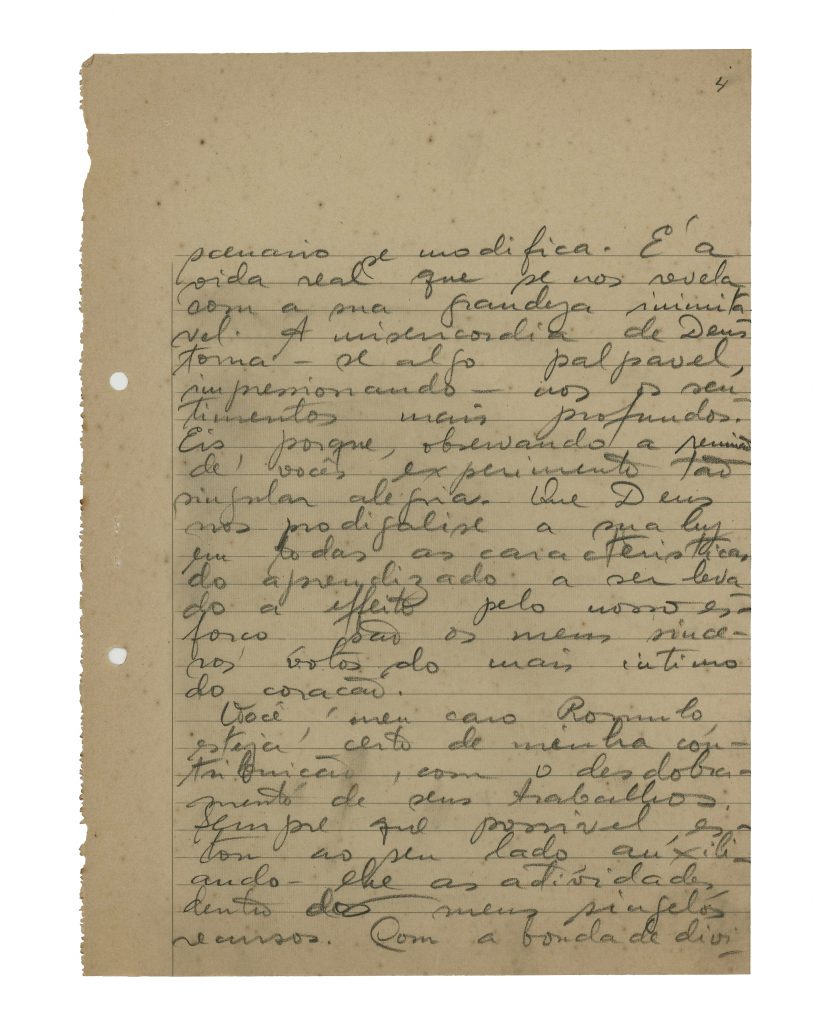 4
scenario se modifica. E' a
vida real que se nos revela
com a sua grandeza inimita
vel. A misericordia de Deus
torna-se algo palpavel,
impressionando-nos os sen-
timentos mais profundos.
Eis porque, observando a reunião
de vocês experimento tão
singular alegria. Que Deus
nos prodigalise a sua luz
em todas as caracteristicas
do aprendizado a ser leva
do a effeito pelo nosso es-
forço são os meus since-
ros votos do mais intimo
do coração.
Você meu caro Romulo,
esteja certo de minha con-
tribuição, com o desdobra-
mento de seus trabalhos.
Sempre que possivel es-
tou ao seu lado auxili-
ando-lhe as atividades
dentro dos meus singelos
recursos. Com a bondade divi